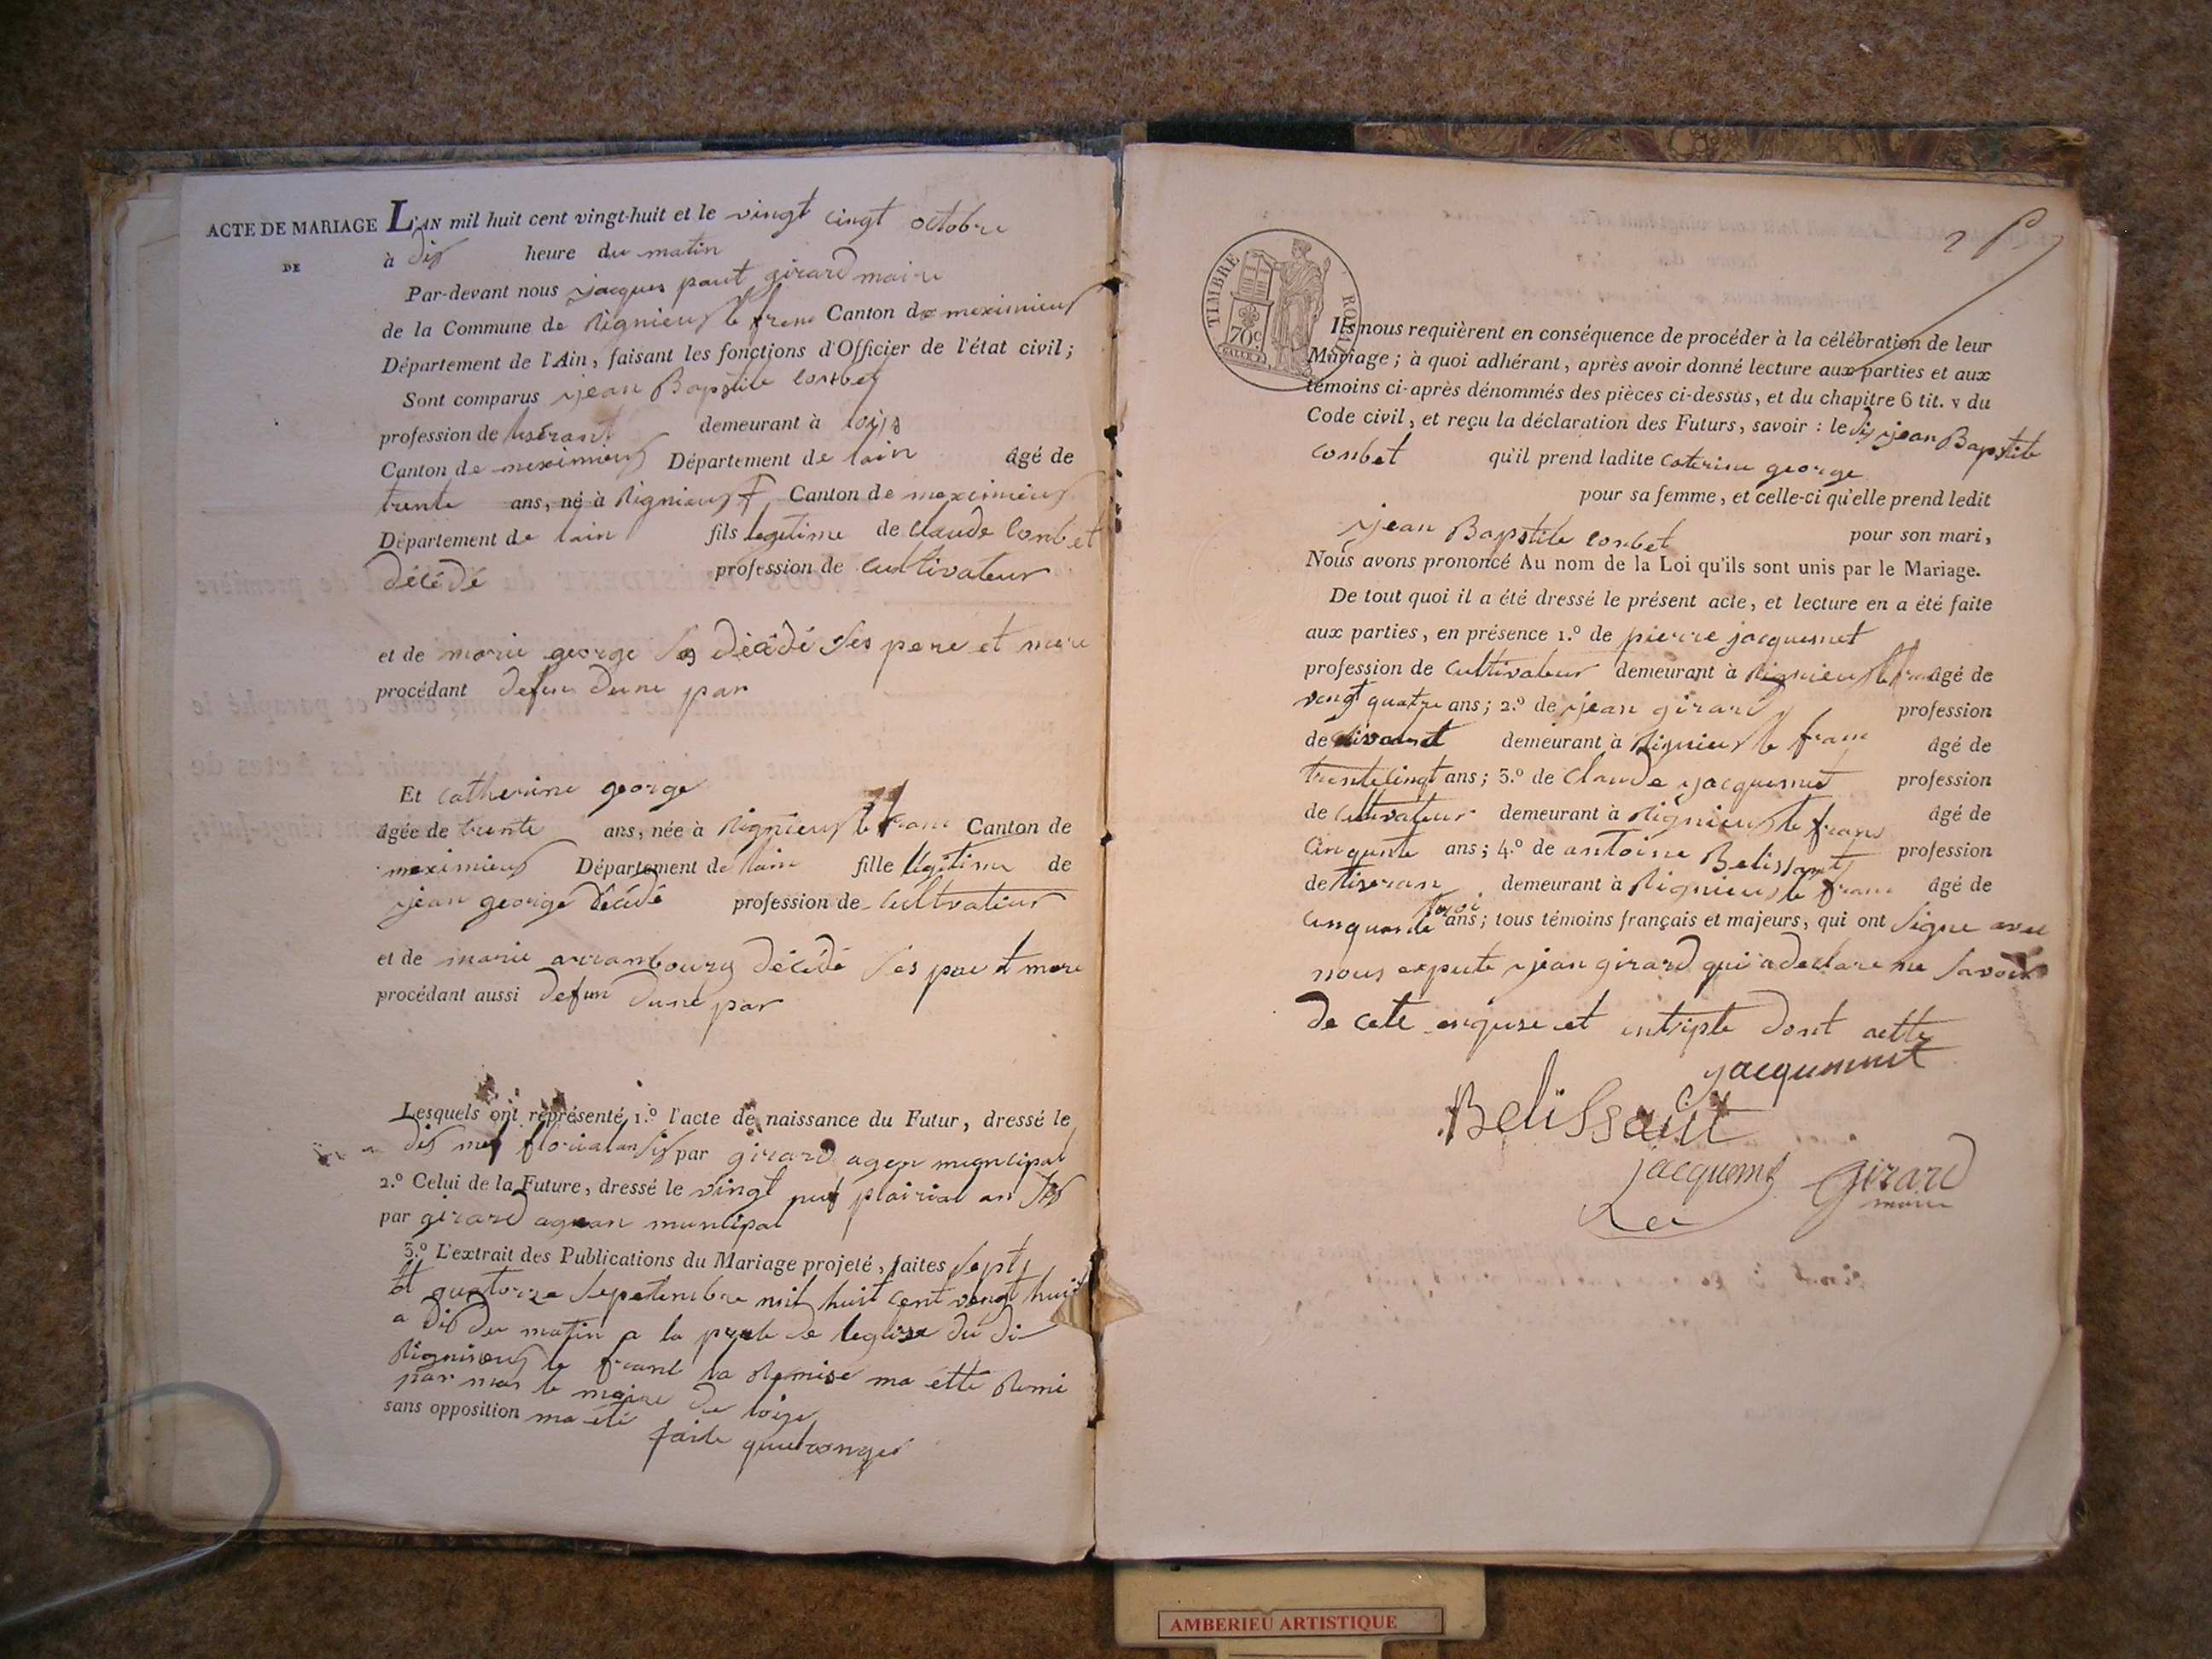 ACTE DE MARIAGE
DE
L'AN mil huit cent vingt-huit et le vingt cingt octobre
à dix heure du matin
Par-devant nous jacques paul girard maire
de la Commune de Rignieux le franc Canton de meximieux
Département de l'Ain, faisant les fonctions d'Officier de l'état civil;
Sont comparus jean Bapstite conbet
profession de demeurant à
Canton de meximieux Département de lain âgé de
trente ans, né à Rignieux f Canton de meximieux
Département de lain fils legitime de claude Conbet
décédé profession de cultivateur
et de marie george décédé ses pere et mere
procédant defun dune par
Et catherine george
âgée de trente ans, née à Rignieux le franc Canton de
meximieux Département de lain fille légitime de
jean george décédé profession de cultvateur
et de marie arrambourg décédé ses pere et mere
procédant aussi defun dune par
Lesquels ont représenté, 1.º l'acte de naissance du Futur, dressé le
dix par girard agen municipal
2.º Celui de la Future, dressé le vingt plairial an
par girard muncipal
3.º L'extrait des Publications du Mariage projeté, faites sept
et quatorze Sepetembre mil huit cent vengt huit
a dix du matin a la de leglise du di
Rignieux le franc la Remise ma ette Remi
par le maire de loije
sans opposition ma été
faite
2 P
TIMBRE ROYAL
70c
Ils nous requièrent en conséquence de procéder à la célébration de leur
Mariage; à quoi adhérant, après avoir donné lecture aux parties et aux
témoins ci-après dénommés des pièces ci-dessus, et du chapitre 6 tit. v du
Code civil, et reçu la déclaration des Futurs, savoir : le jean Bapstite
conbet qu'il prend ladite caterine george
pour sa femme, et celle-ci qu'elle prend ledit
jean Bapstite conbet pour son mari,
Nous avons prononcé Au nom de la Loi qu'ils sont unis par le Mariage.
De tout quoi il a été dressé le présent acte, et lecture en a été faite
aux parties, en présence 1.º de pierre jacquemet
profession de cultivateur demeurant à Rignieux le franc âgé de
vengt quatre ans; 2.º de jean girard profession
de demeurant à Rignieux le franc âgé de
trente cingt ans; 3.º de Claude jacquemet profession
de cultivateur demeurant à Rignieux le franc âgé de
Cinquente ans; 4.º de antoine Belissant profession
de tiseran demeurant à Rignieux le franc âgé de
cinquante ans; tous témoins français et majeurs, qui ont signe avec
nous expcete jean girard qui a declare ne savoir
de cete enquise et dont actte
jacquemet
Belissant
jacquemet
girard
maire
AMBERIEU ARTISTIQUE